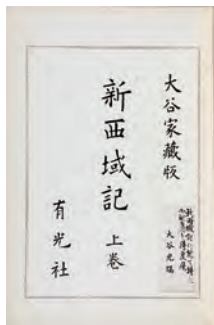 大谷家藏版
新西域記 上卷
有光社
大谷光瑞